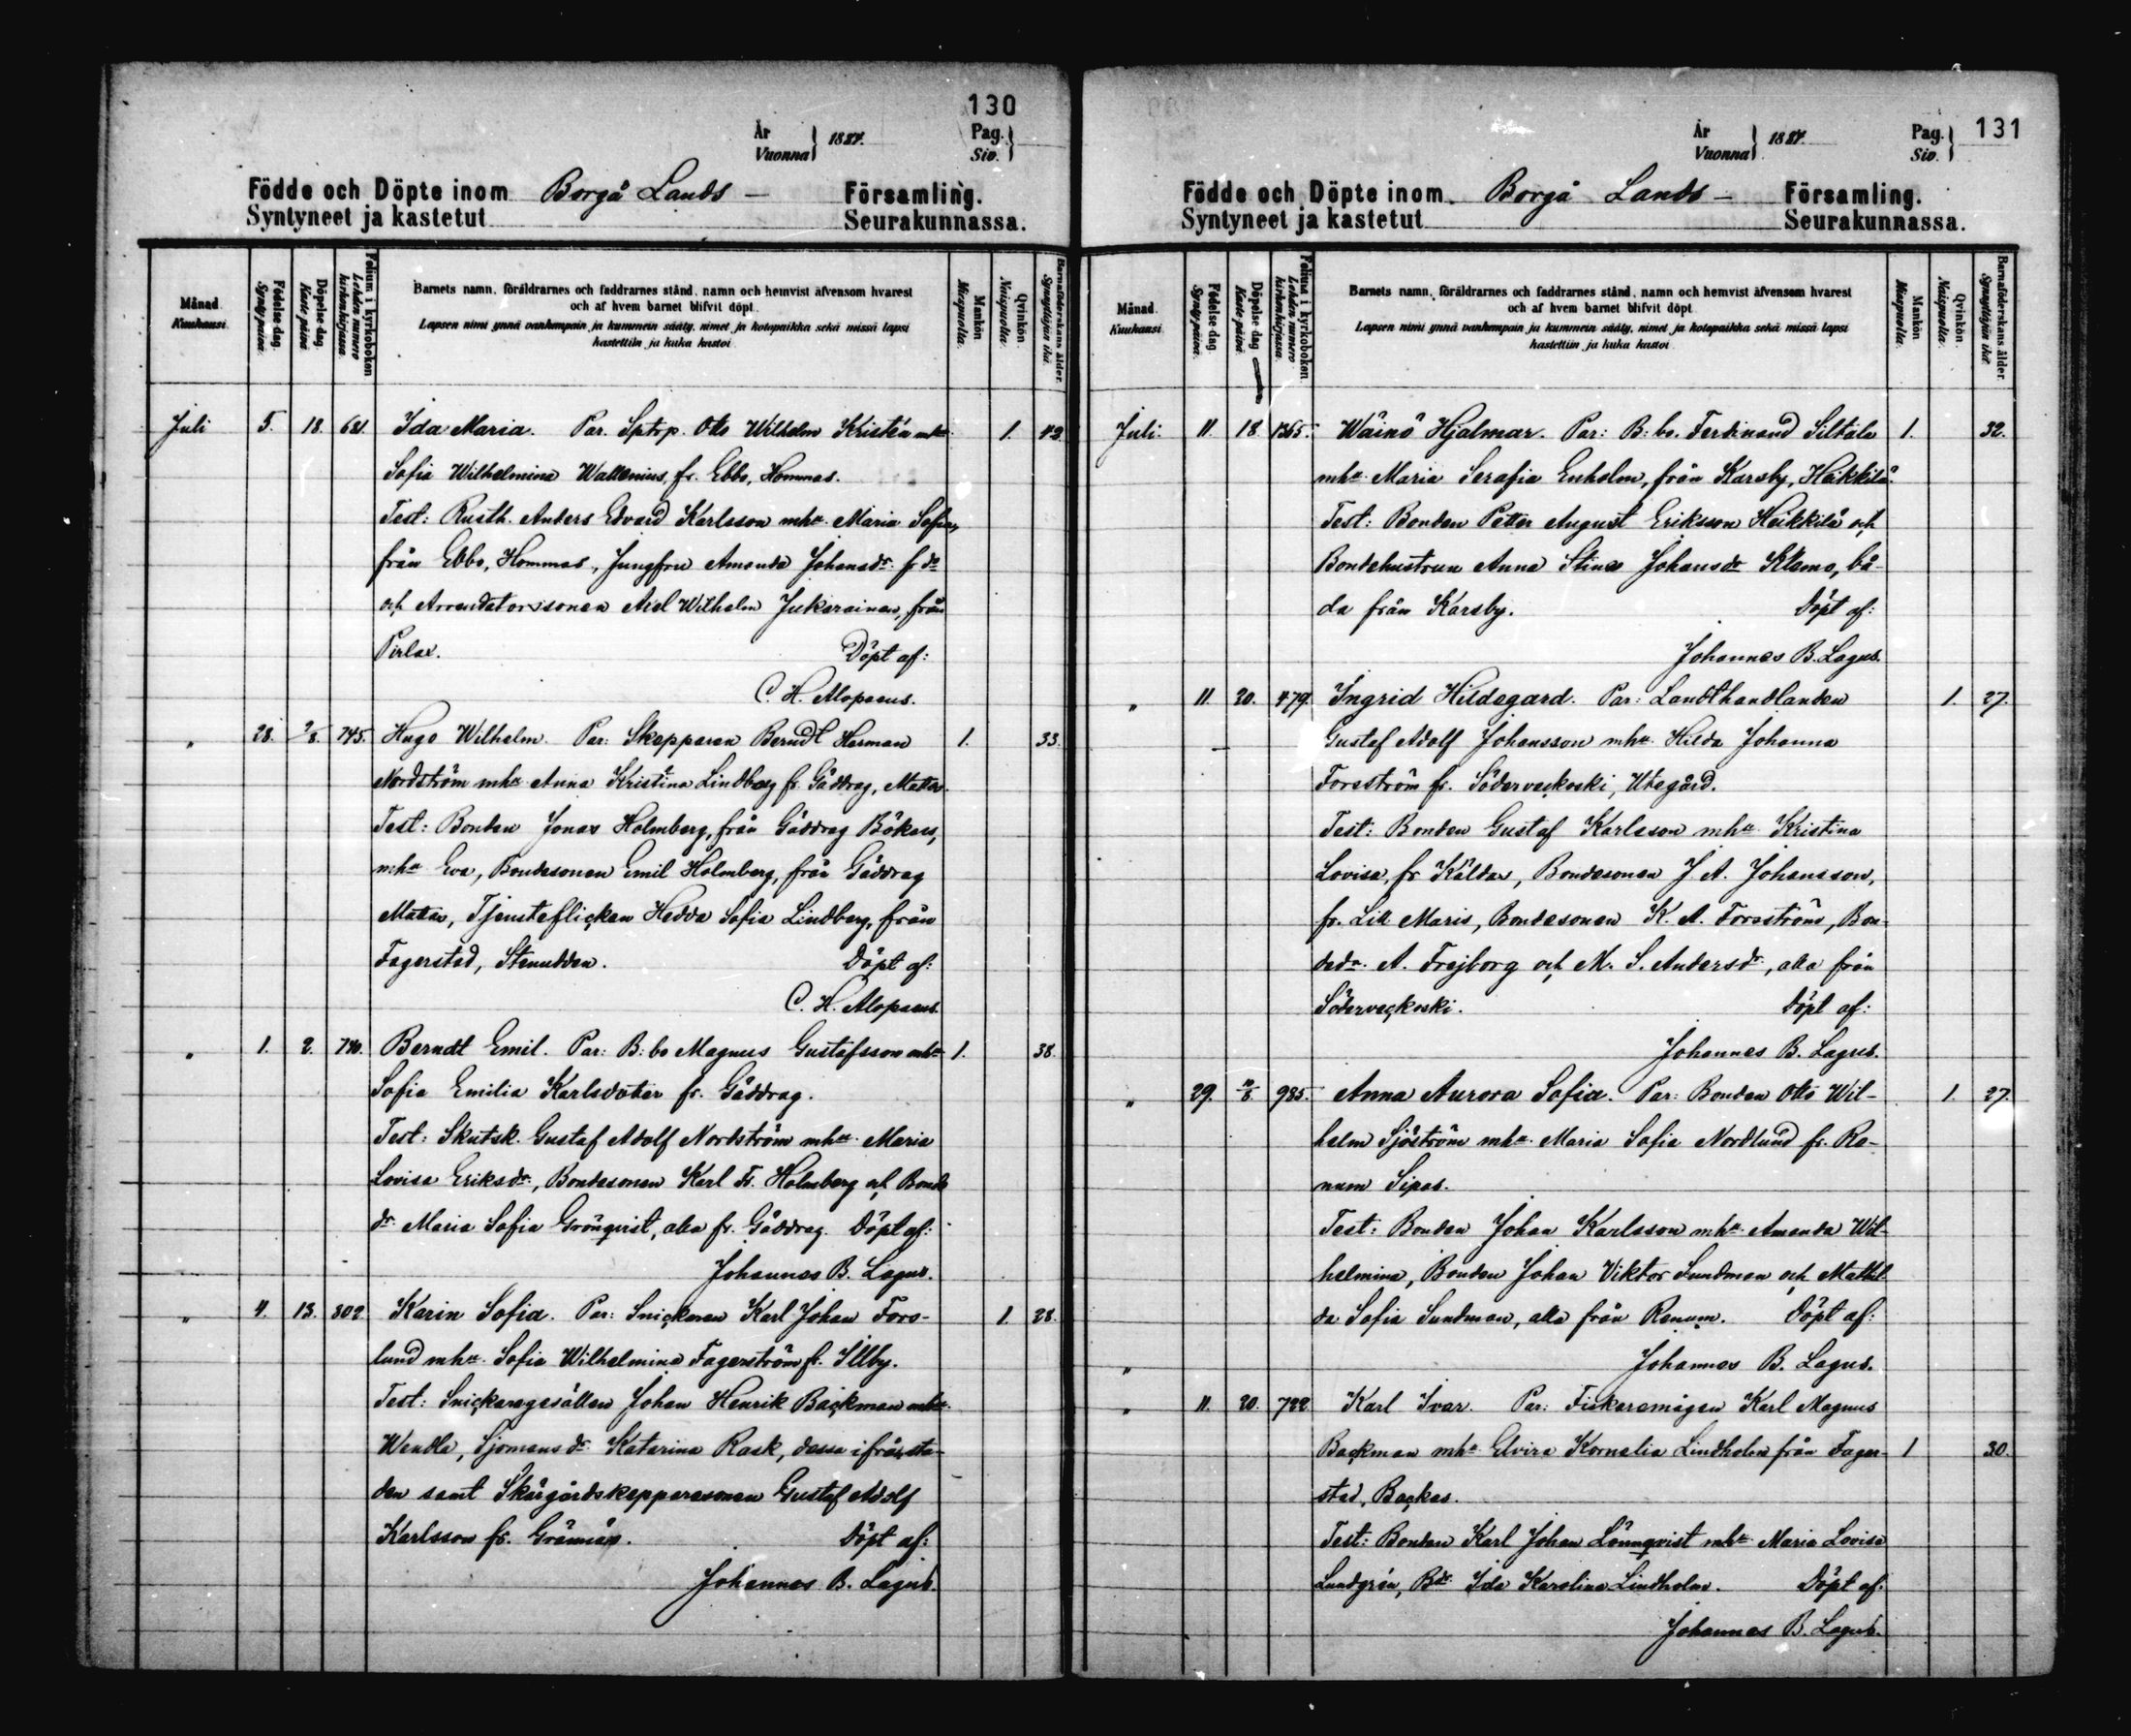 130
År
Vuonna } 1887.
Pag.
Siv. }
Födde och Döpte inom Borgå Lands — Församling.
Syntyneet ja kastetut Seurakunnassa.
Månad. Kuukausi.
Födelse-dag. Syntypäivä.
Döpelse-dag. Kastepäivä
Folium i kyrkoboken Lehden numero kirkonkirjassa.
Barnets namn, föräldrarnes och faddrarnes stånd, namn och hemvist äfvensom hvarest
och af hvem barnet blifvit döpt.
Lapsen nimi ynnä vanhempain ja kummein sääty, nimet ja kotopaikka sekä missä lapsi
kastettiin ja kuka kastoi
Mankön Miespuolia.
Qvinkön. Naispuolia.
Barnaföderskans ålder. Synnyttäjän ikä.
Juli 5. 18. 681. Ida Maria. Par. Sptrp. Otto Wilhelm Kristén mhu 1. 42.
Sofia Wilhelmina Wallenius, fr. Ebbo, Hommas.
Test: Rusth. Anders Edvard Karlsson mhu Maria Sofia,
från Ebbo, Hommas, Jungfru Amanda Johansdr fr do
och Arrendatorssonen Axel Wilhelm Jukarainen, från
Pirlax. Döpt af:
C. H. Alopaeus.
" 28. 2/8. 745. Hugo Wilhelm. Par: Skepparen Berndt Herman 1. 33.
Nordström mhu Anna Kristina Lindberg fr. Gäddrag, Mattas.
Test: Bonden Jonas Holmberg, från Gäddrag Bökars,
mhu Eva, Bondesonen Emil Holmberg, från Gäddrag
Mattas, Tjensteflickan Hedda Sofia Lindberg, från
Fagerstad, Stenudden. Döpt af:
C. H. Alopaeus.
" 1. 2. 740. Berndt Emil. Par: B: bo Magnus Gustafsson mhu 1. 38.
Sofia Emilia Karlsdotter fr. Gäddrag.
Test: Skutsk. Gustaf Adolf Nordström mhu Maria
Lovisa Eriksdr, Bondesonen Karl Fr. Holmberg och Bonde
dr Maria Sofia Grönqvist, alla fr. Gäddrag. Döpt af:
Johannes B. Lagus.
" 4. 13. 802. Karin Sofia. Par: Snickaren Karl Johan Fors- 1. 28.
lund mhu Sofia Wilhelmina Fagerström fr. Illby.
Test: Snickaregesällen Johan Henrik Backman mhu
Wendla, Sjömansdr Katarina Rask, dessa ifrån sta-
den samt Skärgårdskepparesonen Gustaf Adolf
Karlsson fr. Grännäs. Döpt af:
Johannes B. Lagus.
131
År
Vuonna } 1887.
Pag.
Siv. }
Födde och Döpte inom Borgå Lands — Församling.
Syntyneet ja kastetut Seurakunnassa.
Månad. Kuukausi.
Födelse-dag. Syntypäivä.
Döpelse-dag. Kastepäivä.
Folium i kyrkoboken Lehden numero kirkonkirjassa.
Barnets namn, föräldrarnes och faddrarnes stånd, namn och hemvist äfvensom hvarest
och af hvem barnet blifvit döpt.
Lapsen nimi ynnä vanhempain ja kummein sääty, nimet ja kotopaikka sekä missä lapsi
kastettiin ja kuka kastoi
Mankön Miespuolia.
Qvinkön. Naispuolia.
Barnaföderskans ålder. Synnyttäjän ikä.
Juli 11. 18. 1365. Wäinö Hjalmar. Par: B: bo. Ferdinand Siltala 1. 32.
mhu Maria Serafia Enholm, från Karsby, Heikkilä.
Test: Bonden Petter August Eriksson Heikkilä och
Bondehustrun Anna Stina Johansdr Klemo, bå-
da från Karsby. Döpt af:
Johannes B. Lagus.
" 11. 20. 479. Ingrid Hildegard. Par: Landthandlanden 1. 27.
Gustaf Adolf Johansson mhu Hilda Johanna
Forsström fr. Söderveckoski, Utegård.
Test: Bonden Gustaf Karlsson mhu Kristina
Lovisa, fr Kälda, Bondesonen J. A. Johansson,
fr. Lill Maris, Bondesonen K. A. Forsström, Bon-
dedr. A. Frejborg och M. S. Andersdr, alla från
Söderveckoski. Döpt af:
Johannes B. Lagus.
" 29. /8. 985. Anna Aurora Sofia. Par: Bonden Otto Wil- 1. 27.
helm Sjöström mhu Maria Sofia Nordlund fr. Ra-
num Sipas.
Test: Bonden Johan Karlsson mhu Amanda Wil-
helmina, Bonden Johan Viktor Sundman och Mathil-
da Sofia Sundman, alla från Ranum. Döpt af:
" Johannes B. Lagus.
" 11. 20. 722. Karl Ivar. Par: Fiskaremågen Karl Magnus
Backman mhu Elvira Kornelia Lindholm från Fager- 1 30.
stad, Backas.
Test: Bonden Karl Johan Lönnqvist mhu Maria Lovisa
Lundgrén, Bdr. Ida Karolina Lindholm. Döpt af:
Johannes B. Lagus.